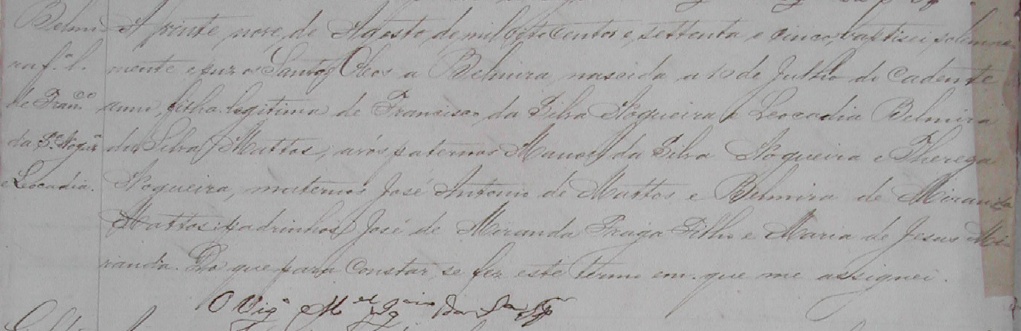 Belmi-
ra f.ª l.
de Fran.co
da S.ª Nogr.ª
e Leocadia.
A vinte nove de Agosto de mil oitocentos e settenta e cinco, baptisei solemne-
mente e puz os Santos Oleos a Belmira, nascida a 10 de Julho do cadente
anno, filha legitima de Francisco da Silva Nogueira e Leocadia Belmira
da Silva Mattos, avós paternos Manoel da Silva Nogueira e Thereza
Nogueira, maternos José Antonio de Mattos e Belmira de Miranda
Mattos; padrinhos José de Miranda Fraga Filho e Maria de Jesus Mi-
randa. Do que para constar se fez este termo em que me assignei.
O Vigº M.el